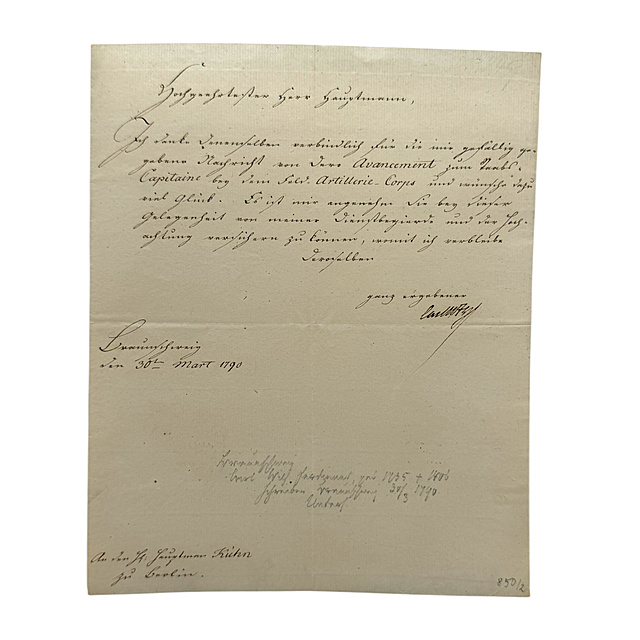 Hochgeehrtester Herr Hauptmann,
Ich danke Denenselben verbindlich für die mir gefällig ge-
gebene Nachricht von Dero Avancement zum Staabs-
Capitaine bey dem Feld-Artillerie-Corps und wünsche dazu
viel Glück. Es ist mir angenehm Sie bey dieser
Gelegenheit von meiner Dienstbegierde und der Hoch-
achtung versichern zu können, womit ich verbleibe
Deroselben
ganz ergebener
Braunschweig
den 30t Mart 1790
Braunschweig
Carl Wilh. Ferdinand, geb 1735 + 1806
Schreiben Braunschweig 30/3 1790
An den H. Hauptman Kühn
zu Berlin.
850/2